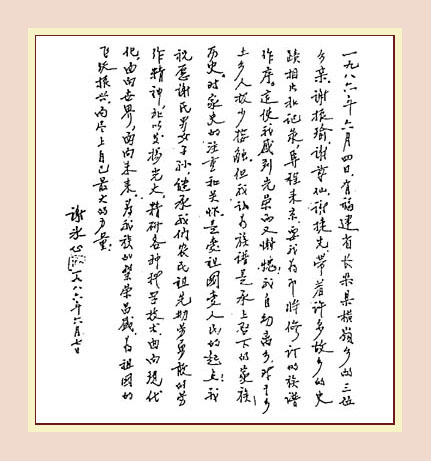 一九八六年六月四日，有福建省长乐县横岭乡的三位
乡亲，谢振瑜、谢 仙、谢捷先，带着许多故乡的史
迹相片和记录，专程来京，要我为即将修订的族谱
作序。这使我感到光荣而又惭愧，我自幼离乡，对于乡
土乡人极少接触。但我认为族谱是承上启下的家族
历史。对家史的注重和关怀是爱祖国爱人民的起点！我
祝愿谢氏男女子孙继承我们农民祖先勤劳勇敢的劳
作精神，加以发扬光大，精研各种科学技术，面向现代
化，面向世界，面向未来，为我族的繁荣昌盛，为祖国的
飞跃振兴，而尽上自己最大的力量。
谢冰心 一九八六年六月七日